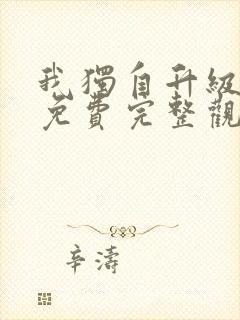 我獨自升級
免費完整觀
辛濤